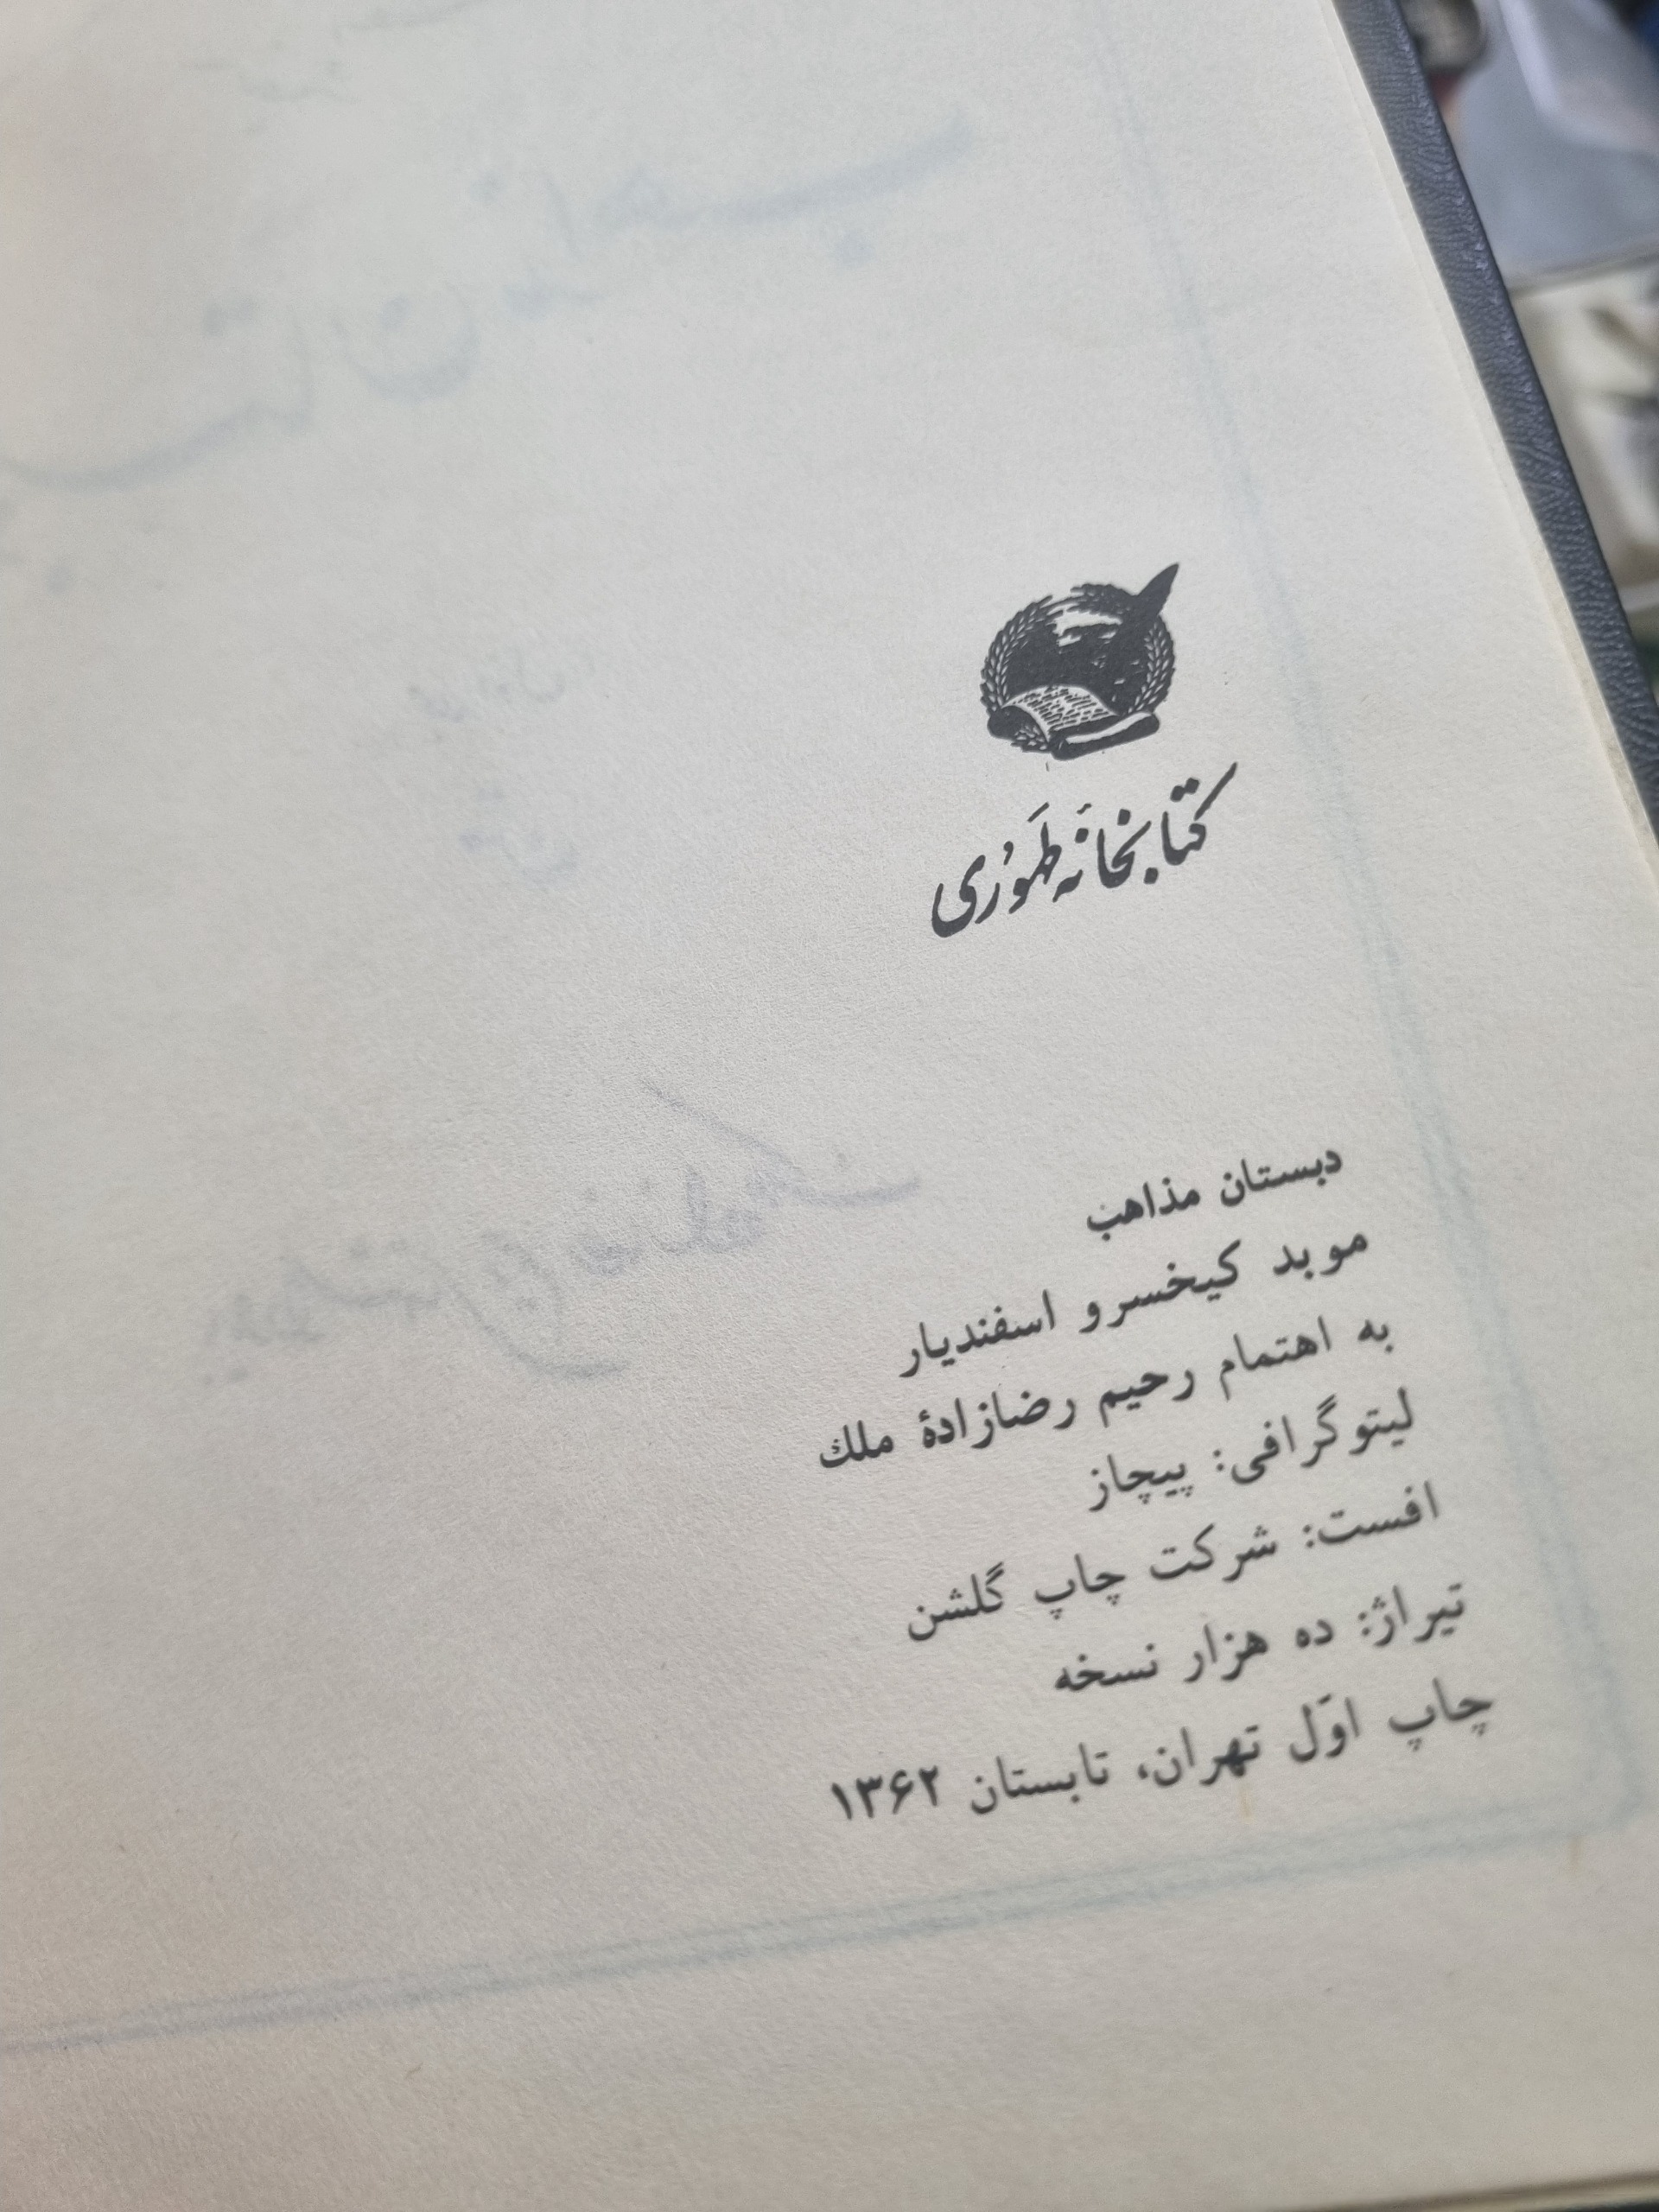 کتابخانهٔ طَهُوری
دبستان مذاهب
موبد کیخسرو اسفندیار
به اهتمام رحیم رضازادهٔ ملك
لیتوگرافی: پیچاز
افست: شرکت چاپ گلشن
تیراژ: ده هزار نسخه
چاپ اوّل تهران، تابستان ۱۳۶۲